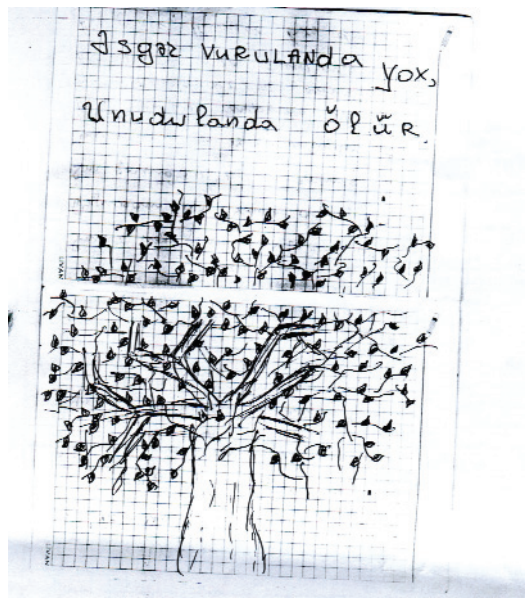 Əsgər VURULANDA yox,
Unudulanda ölüR.